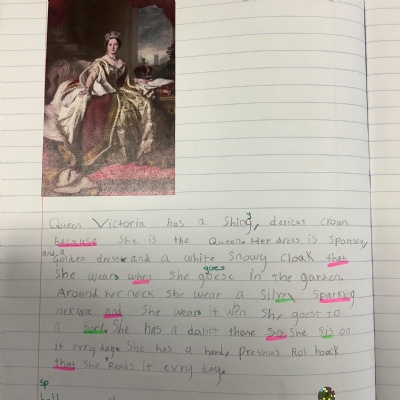 Queen Victoria has a Shiny, delicat crown
because She is the Queen. Her dress is Sparcky,
and a
Golden dress and a white Snowy Cloak that
goes
She wears when She goese In the garden.
Around her neck She wear a Silver Sparking
neklace and She wears it when She goest to
a ball. She has a dalict throne So She Sis on
it evry day. She has a hard, preshus Rol boock
that She Reads it evry day.
sp
ball